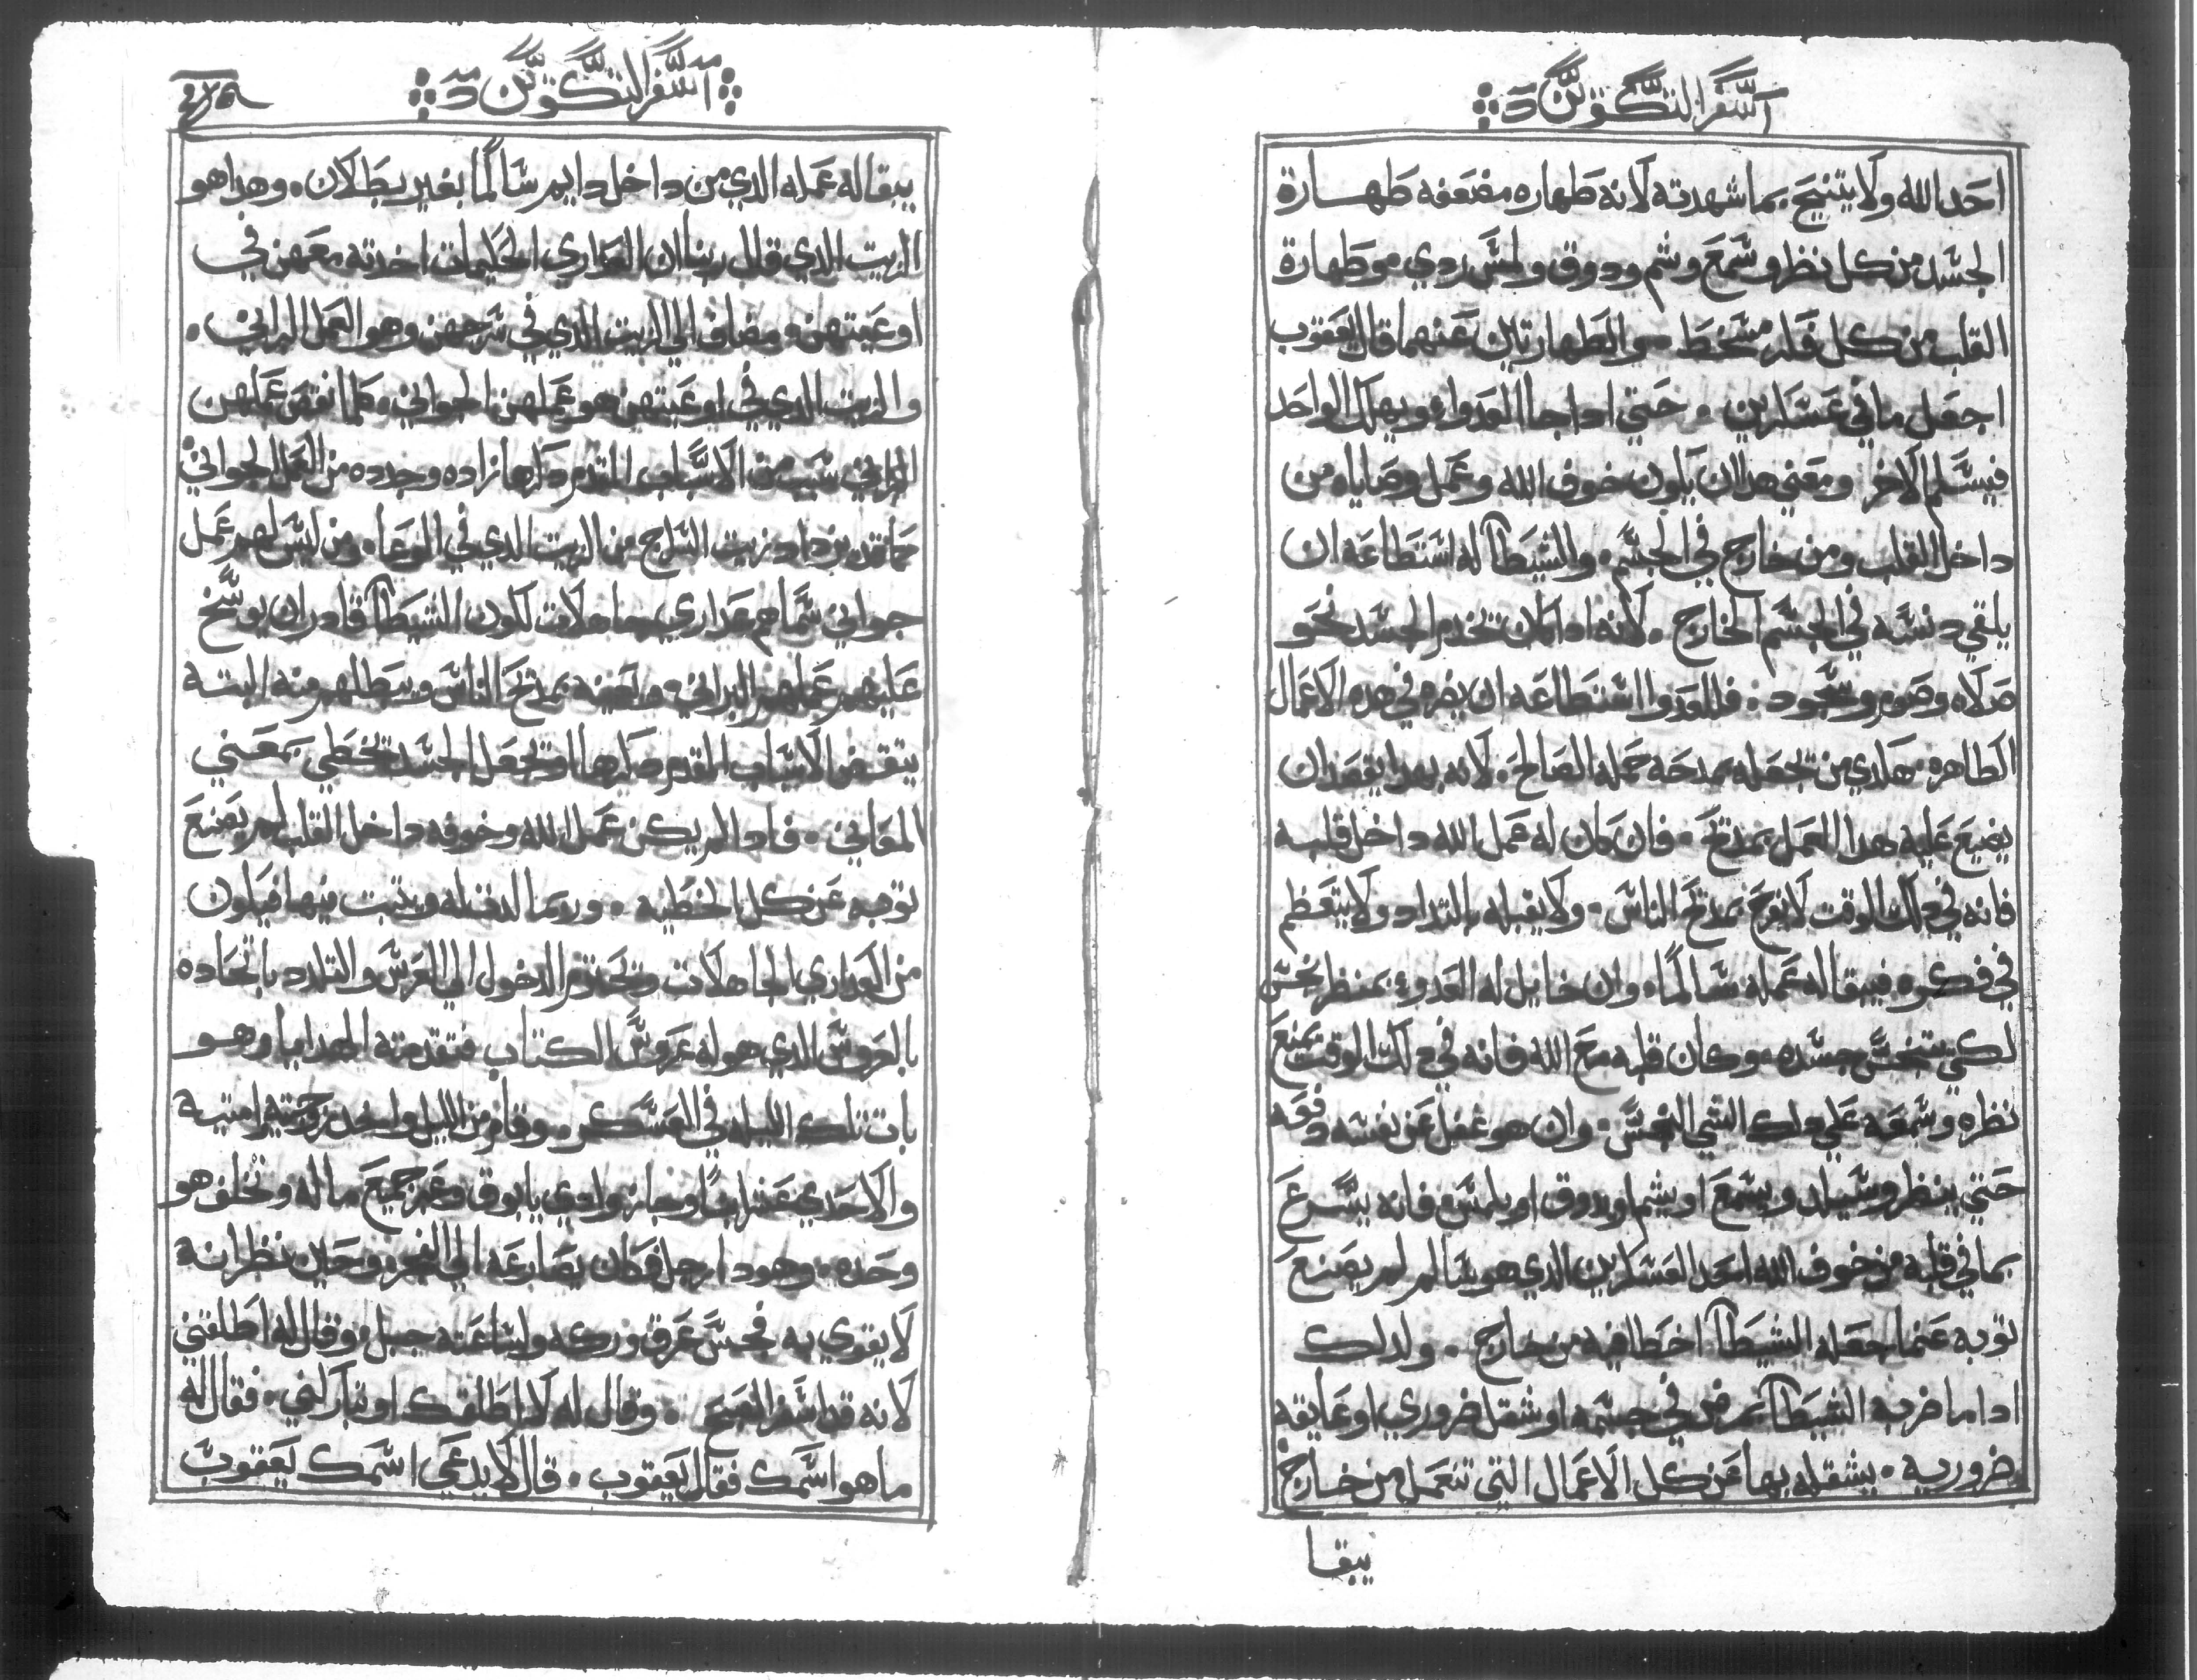 سفر التكوين
احد الله ولا يتنجح بما شهدته لانه طهاره مضعفه طهارة
الجسد من كل نظر وسمع وشم ودوق ولمس ردي مو طهارة
القلب من كل فكر مسخط والطهارتان عنهما قال يعقوب
اجعل مافي عسكرين حتي اداجا العدوا ويهلك الواحد
فيسلم الاخر ومعني هدا ان يكون خوف الله وعمل وصاياه من
داخل القلب ومن خارج في الجسم والشيطان له استطاعه ان
يلقي دنسه في الجسم الخارج لانه اداكان تخدم الجسد نحو
صلاه وصوم وسجود فللعدوا استطاعه ان يضره في هده الاعمال
الطاهره هكدي من تجعله بمدحه جمله الصالح لانه بهدا يقصد ان
يضيع عليه هدا العمل بمدتح فان كان له عمل الله داخل قلبه
فانه في دلك الوقت لا يفرح بمدتح الناس ولا يقبله بالتداد ولا يتعظم
في فكره فيبقا له عمله سالما وان خايل له العدو بمنظر نجس
لكي ينجس جسده وكان قلبه مع الله فانه في دلك الوقت يمنع
نظره وسمعه علي دلك الشي النجس وان هو غفل عن نفسه دفعه
حتي ينظر وسيلد ويسمع او يشم او يدوق او يلمس فانه يسرع
بما في قلبه من خوف الله احد العسكرين الدي هو سالم لم يصنع
توبه عنما جعله الشيطان اخطا فيه من خارج ولدلك
ادا ما ضربه الشيطان بمرض في جسمه او شغل ضروري او عايقه
ضروريه يشغله بها عن كل الاعمال التي تنعمل من خارج
يبقا
سفر التكوين
يبقا له عمله الدي من داخل دايم سالما بغير بطلان وهدا هو
الزيت الدي قال ربنا ان العداري الحكيمات اخدته معهن في
اوعيتهن مضاف الي الزيت الدي في سرجهن وهو العمل البراني
والزيت الدي في اوعيتهن هو عملهن الجواني كلما نقص عملهن
البراني سبب من الاسباب المتقدم دكرها زاده وجدده من العمل الجواني
كما قد يزداد زيت السراج من الزيت الدي في الوعا ومن ليس لهم عمل
جواني سماهم عداري جاهلات لكون الشيطان قادر ان يوسخ
عليهم عملهم البراني وبعيبه بمدتح الناس ويبطلهم منه البته
بنقص الاسباب المتقدم دكرها او تجعل الجسد تخطي بمعني
المعاني فادا لم يكن عمل الله وخوفه داخل القلب لم يصنع
توبه عن كل الخطيه وربما الدفنله ويتبت فيها فيكون
من العداري الجاهلات وتحترم الدخول الي العرس والتلدد باتحاده
بالعروس الدي هو له عروس الكتاب فتقدمته الهدايا وهو
بات تلك الليله في العسكر وقام من الليل واخد زوجتيه امتيه
والاحدي عشر ابنا وجاز وادي يابوق وعبر جميع ماله وتخلف هو
وحده وهودا رجل فكان يصارعه الي الفجر وحين نظر انه
لا يقوي به فجس عرق وركه ولساعته جبل وقال له اطلقني
لانه قد اسفر الصبح وقال له لا اطلقك او تباركني فقال له
ما هو اسمك فقال يعقوب قال لا يدعي اسمك يعقوب